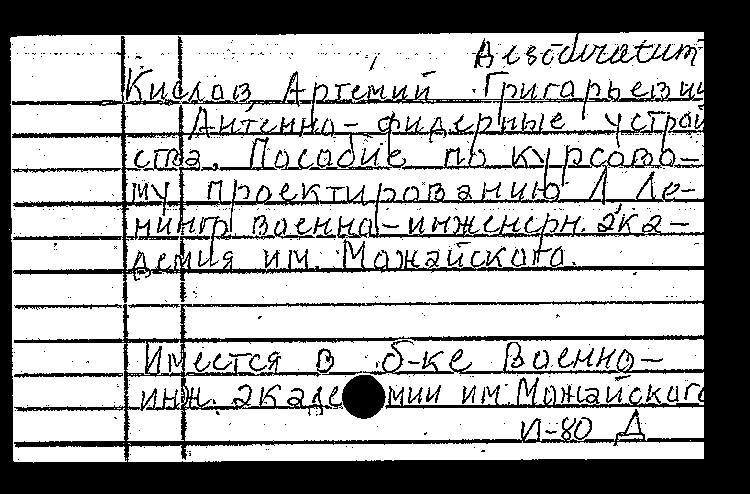 Desideratum
Кислов, Артемий Григорьевич
Антенно-фидерные устрой
ства. Пособие по курсово-
му проектированию Л, Ле-
нингр военно-инженерн. ака-
демия им. Можайского.
Имеется в б-ке Военно-
инж. академии им. Можайского
И-80 Д